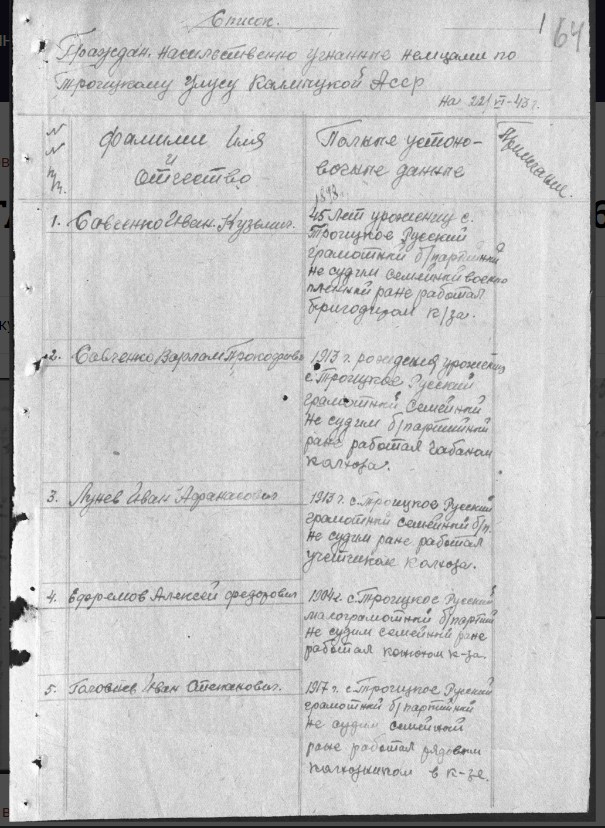 Список.
1
64
Граждан. насильственно угнанные немцами по
Троицкому Улусу Калмыцкой Асср
на 22/VI-43 г.
NN п/п.
Фамилии Имя
и
Отчество
Полные устоно-
вочные данные
Примечание.
1898.
1. Савченко Иван. Кузьмич.
45 лет уроженец с.
Троицкое Русский
грамотный б/партийный
не судим семейный военно
пленный ране работал
бригодиром к/за.
2. Савченко Варлам Прокофьевич
1913 г. рождения уроженец
с. Троицкое Русский
грамотный семейный
не судим б/партийный
ране работал чабаном
колхоза.
3. Лунев Иван Афанасович
1913 г. с. Троицкое Русский
грамотный семейный б/п.
не судим ране работал
учетчиком колхоза.
4. Ефремов Алексей Федорович
1904 г. с. Троицкое Русский
малограмотный б/партий
не судим семейный ране
работал к-за.
5. Иван Степанович.
1917 г. с. Троицкое Русский
грамотный б/партийный
не судим семейный
ране работал рядовым
колхозником в к-зе.